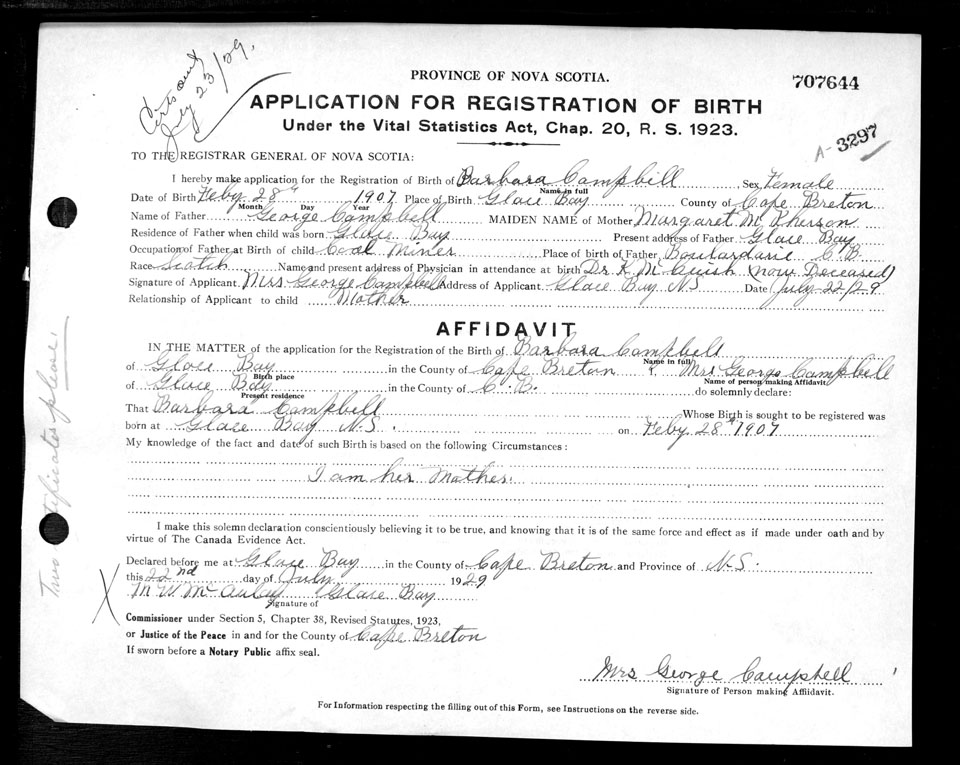 Certs out
July 23/29.
PROVINCE OF NOVA SCOTIA.
707644
APPLICATION FOR REGISTRATION OF BIRTH
Under the Vital Statistics Act, Chap. 20, R. S. 1923.
A-3297
TO THE REGISTRAR GENERAL OF NOVA SCOTIA:
I hereby make application for the Registration of Birth of Barbara Campbell Sex Female
Name in full
Date of Birth Feby 28th 1907 Place of Birth Glace Bay County of Cape Breton
Month Day Year
Name of Father George Campbell MAIDEN NAME of Mother Margaret McPherson
Residence of Father when child was born Glace Bay Present address of Father Glace Bay
Occupation of Father at Birth of child Coal Miner Place of birth of Father Boulardarie C.B.
Race Scotch Name and present address of Physician in attendance at birth Dr. K. McCuish (now Deceased)
Signature of Applicant Mrs. George Campbell Address of Applicant Glace Bay N.S. Date July 22/29
Relationship of Applicant to child Mother
AFFIDAVIT
IN THE MATTER of the application for the Registration of the Birth of Barbara Campbell
Name in full
of Glace Bay in the County of Cape Breton I, Mrs George Campbell
Birth place Name of person making Affidavit
of Glace Bay in the County of C.B. do solemnly declare:
Present residence
That Barbara Campbell Whose Birth is sought to be registered was
born at Glace Bay N.S. on Feby 28th 1907
My knowledge of the fact and date of such Birth is based on the following Circumstances:
I am her Mother.
I make this solemn declaration conscientiously believing it to be true, and knowing that it is of the same force and effect as if made under oath and by
virtue of The Canada Evidence Act.
Declared before me at Glace Bay in the County of Cape Breton and Province of N.S.
this 22nd day of July 1929
M W McAulay Glace Bay
Signature of
Commissioner under Section 5, Chapter 38, Revised Statutes, 1923,
or Justice of the Peace in and for the County of Cape Breton
If sworn before a Notary Public affix seal.
Mrs George Campbell
Signature of Person making Affidavit.
For Information respecting the filling out of this Form, see Instructions on the reverse side.
Two certificates please.